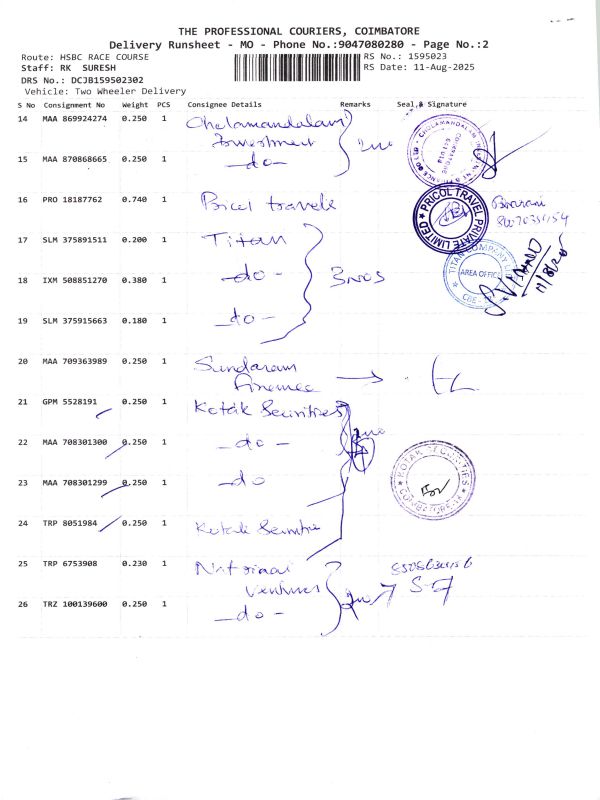 THE PROFESSIONAL COURIERS, COIMBATORE
Delivery Runsheet - MO - Phone No.:9047080280 - Page No.:2
Route: HSBC RACE COURSE RS No.: 1595023
Staff: RK SURESH RS Date: 11-Aug-2025
DRS No.: DCJB159502302
Vehicle: Two Wheeler Delivery
S No Consignment No Weight PCS Consignee Details Remarks Seal & Signature
14 MAA 869924274 0.250 1 Cholamandalam
Investment
15 MAA 870868665 0.250 1 -do-
16 PRO 18187762 0.740 1 Pricol travels
17 SLM 375891511 0.200 1 Titan
18 IXM 508851270 0.380 1 -do- 3NOS
19 SLM 375915663 0.180 1 -do-
20 MAA 709363989 0.250 1 Sundaram
Finance
21 GPM 5528191 0.250 1 Kotak Securities
22 MAA 708301300 0.250 1 -do-
23 MAA 708301299 0.250 1 -do
24 TRP 8051984 0.250 1 Kotak Securitie
25 TRP 6753908 0.230 1 National
Ventures
26 TRZ 100139600 0.250 1 -do-
PRICOL TRAVEL PRIVATE LIMITED
TITAN COMPANY
AREA OFFICE
CBE
11/8/25
KOTAK SECURITIES
COIMBATORE